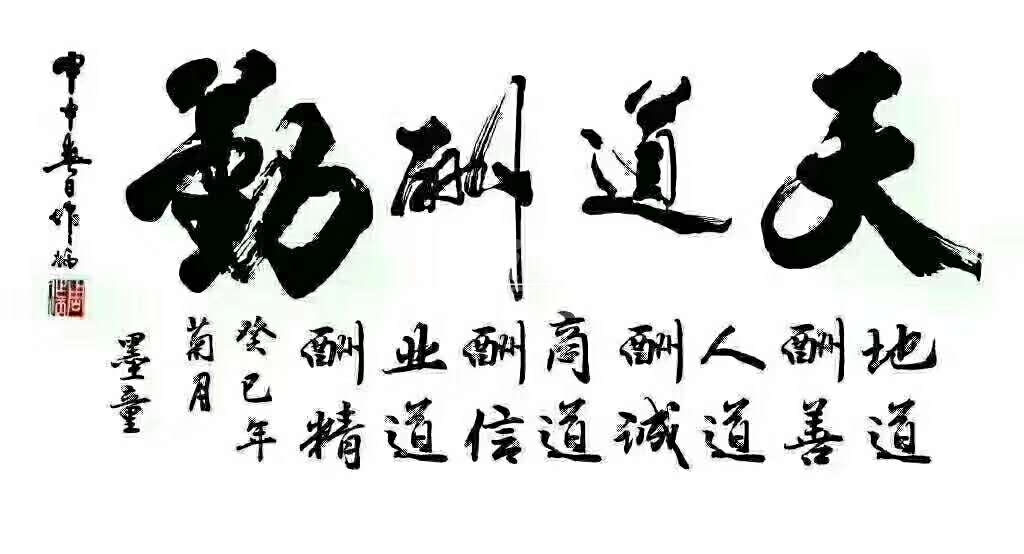 天道酬勤
地道
酬善
人道
酬诚
商道
酬信
业道
酬精
癸巳年
菊月
墨童
甲申春日作炳